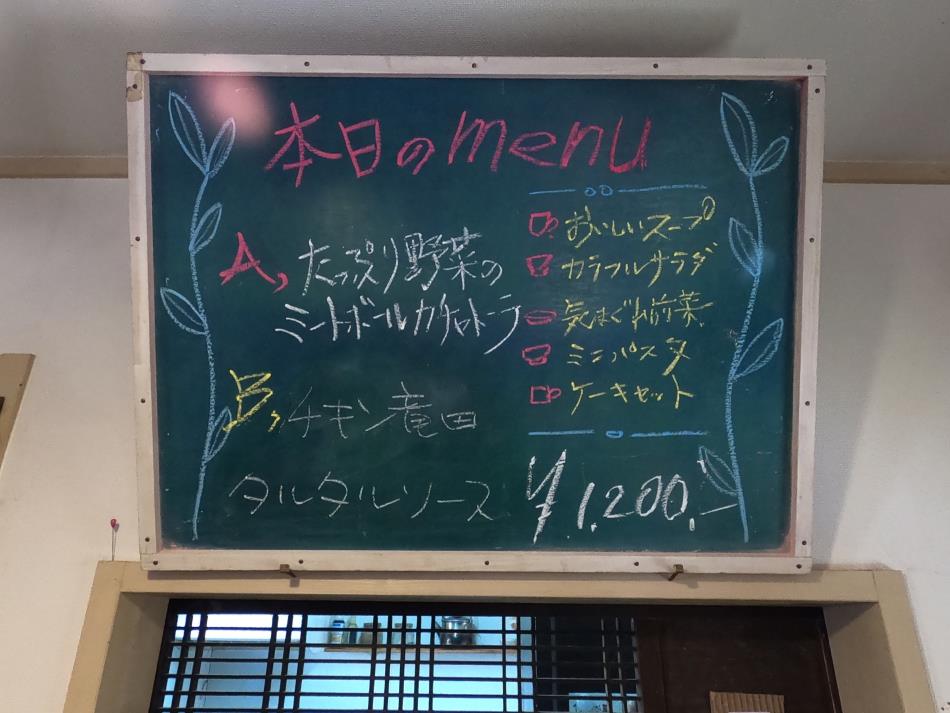 本日のmenu
A, たっぷり野菜の
ミートボールカチャトーラ
B, チキン竜田
タルタルソース
おいしいスープ
カラフルサラダ
気まぐれ前菜
ミニパスタ
ケーキセット
¥1,200.-